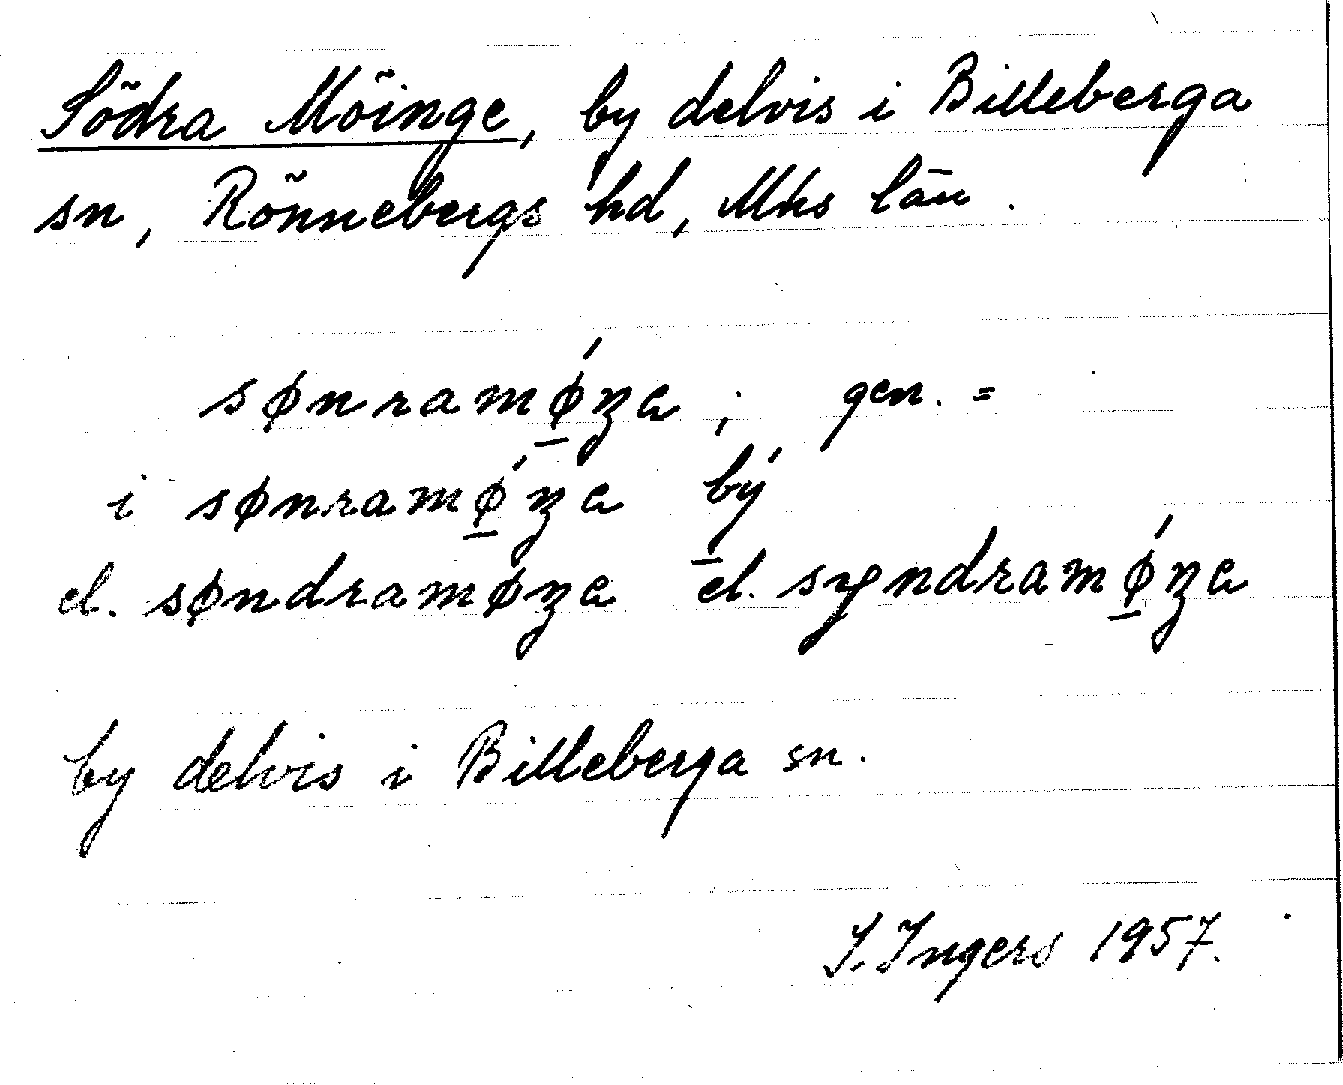 Södra Möinge, by delvis i Billeberga
sn, Rönnebergs hd, Mhs län.
sønramǿ̱ŋa ; gen. =
i sønramǿ̱ŋa bý̱
el. søndramøŋa el. syndramǿ̱ŋa
by delvis i Billeberga sn.
I. Ingers 1957.